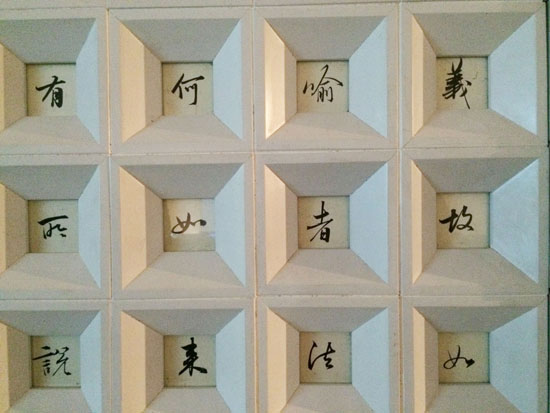 義故如
喻者法
何如来
有所説